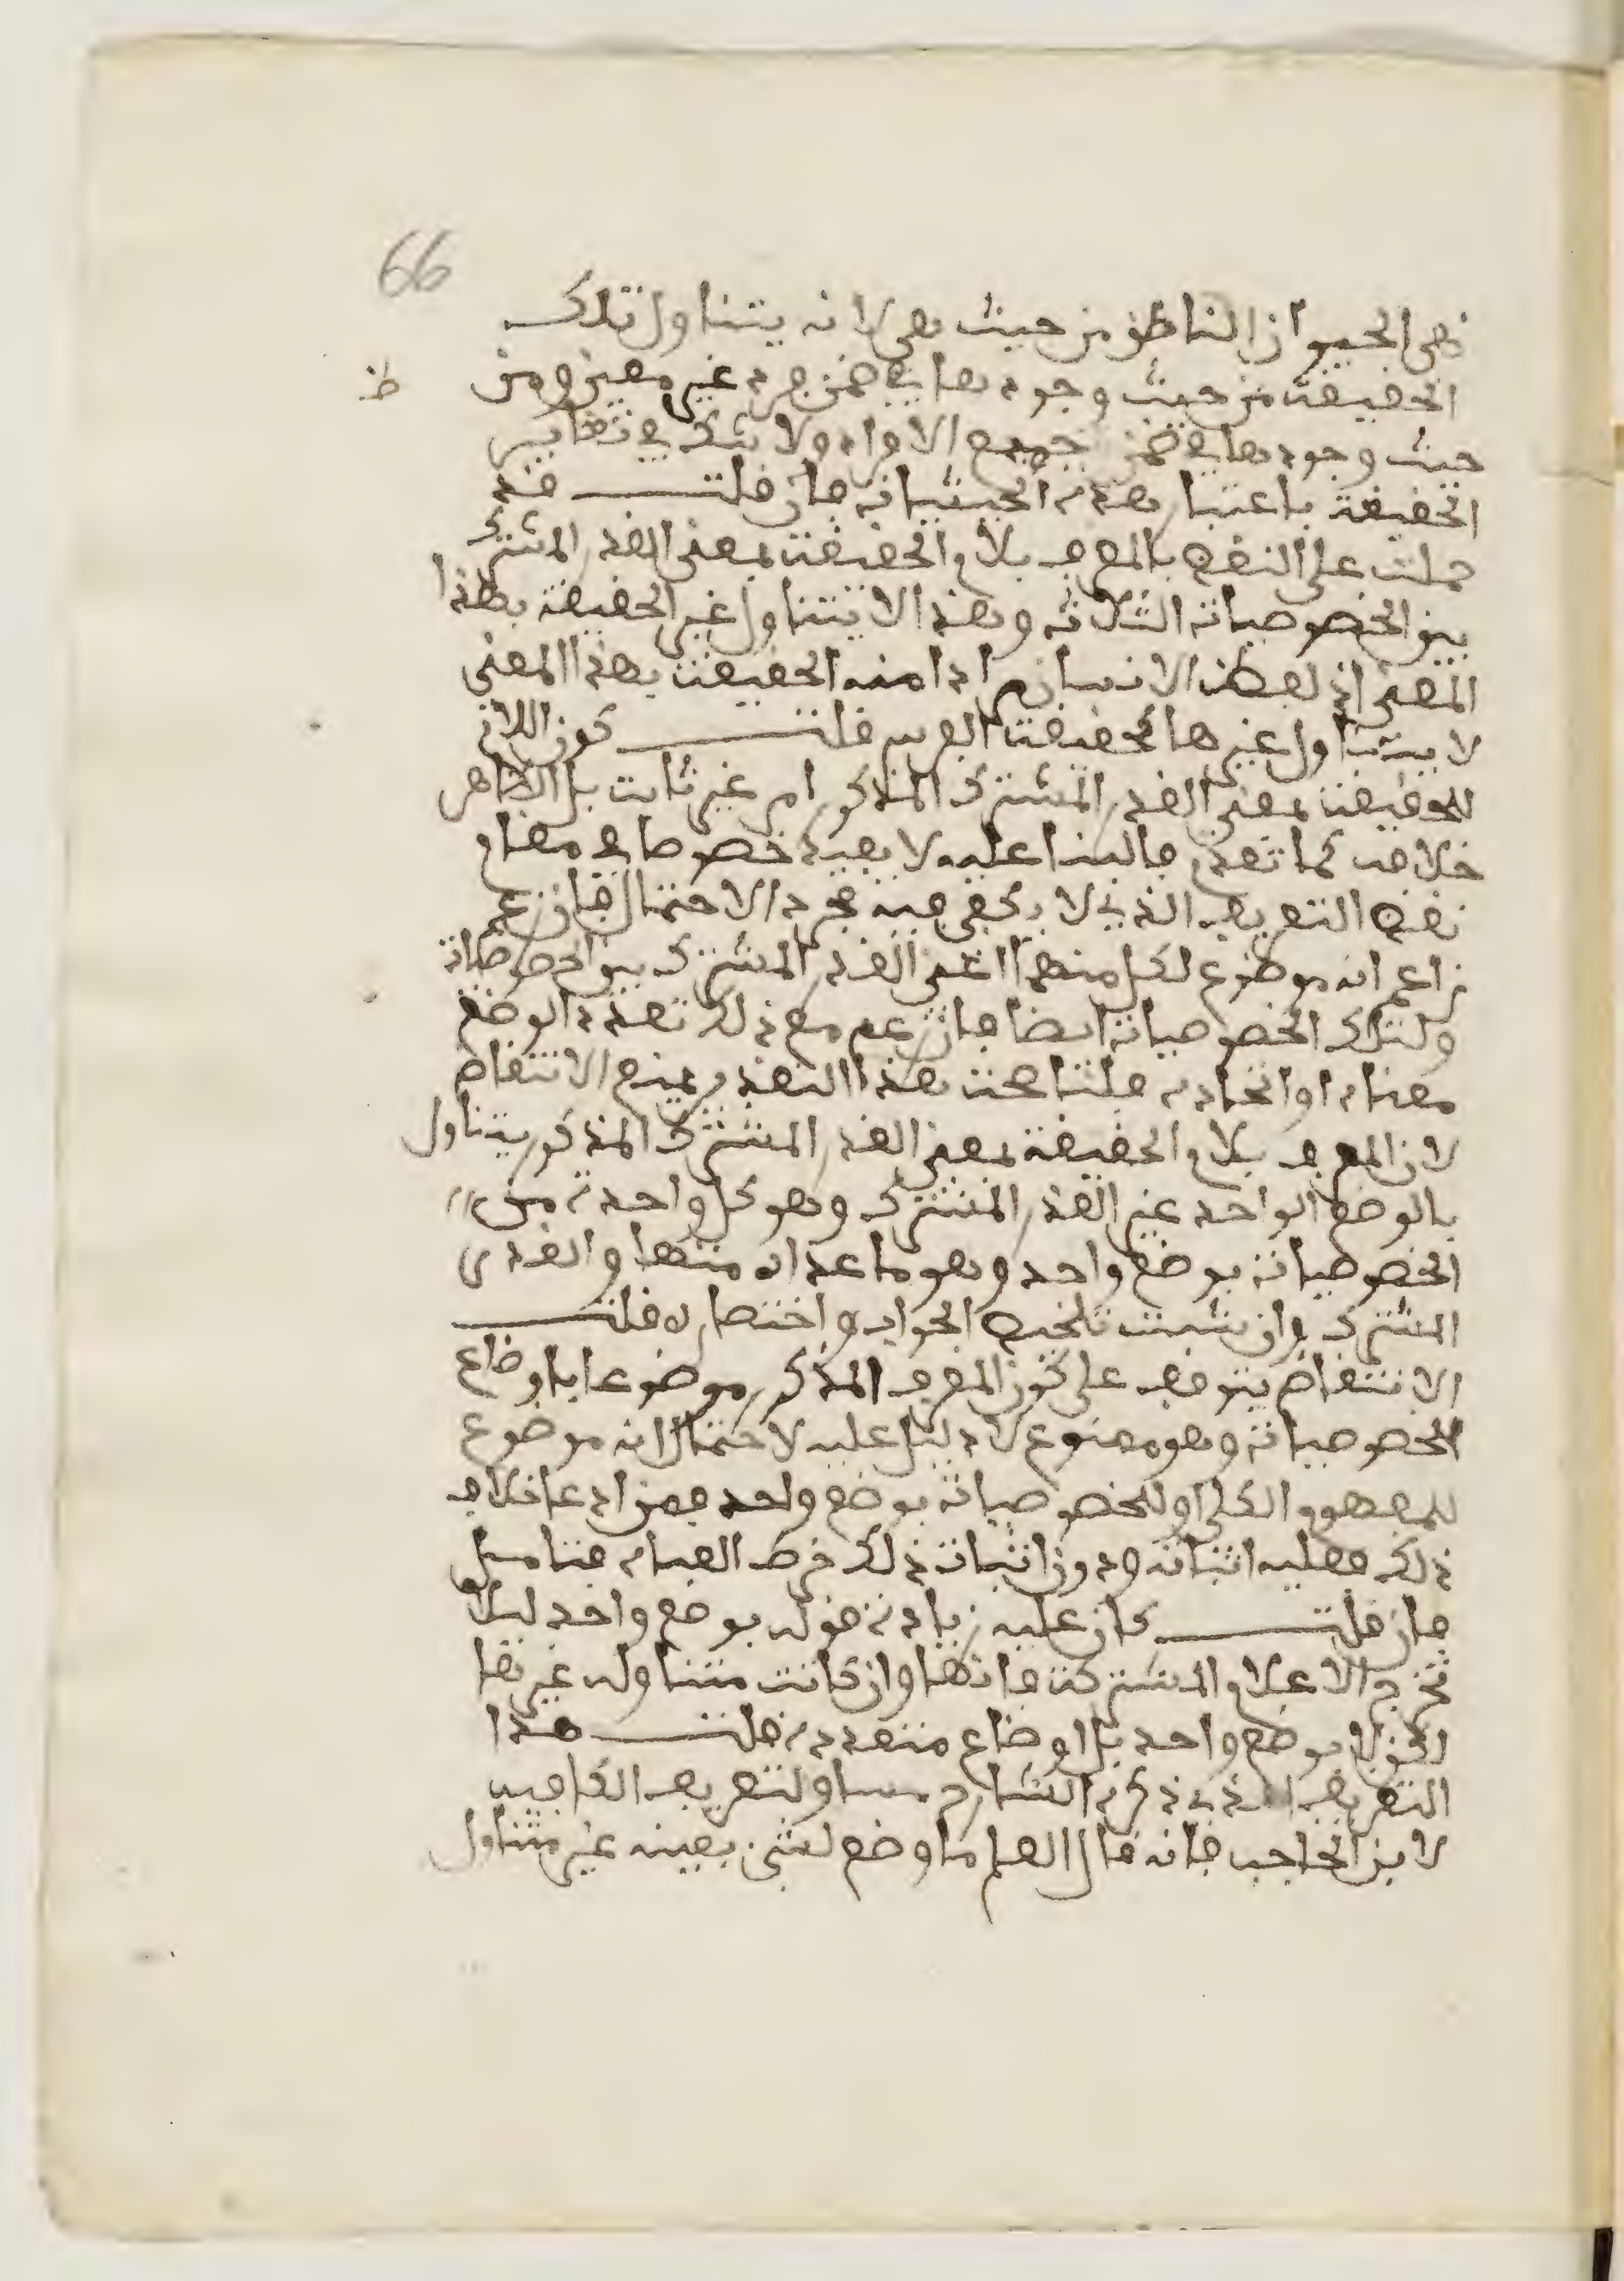 66
نهى الحيوان الناطق من حيث هي لانه يتناول تلك
الحقيقة من حيث وجودها في ضمن فرد غير معين ومن
ظ
حيث وجودها في ضمن جميع الافراد ولا شك في تغاير
الحقيقة باعتبار هذه الحيثيات فان قلت قد
حملت على النقض بالمعرف بلام الحقيقة بمعنى القدر المشترك
بين الخصوصيات الثلاثة وهذا لا يتناول غير الحقيقة بهذا
المعنى اذ لفظ الانسان مرادا منه الحقيقة بهذا المعنى
لا يتناول غيرها كحقيقة الفرس قلت كون اللام
للحقيقة بمعنى القدر المشترك المذكور امر غير ثابت بل الظاهر
خلافه كما تقدم فالبناء عليه لا يفيد خصوصا في مقام
نقض التعريف الذي لا يكفي فيه مجرد الاحتمال فان زعم
زاعم انه موضوع لكل منهما اعني القدر المشترك بين الخصوصيات
ولتلك الخصوصيات ايضا فان زعم مع ذلك تعدد الوضع
معناه او اتحاده قلنا صحت هذا التقدير يمنع الانتقاض
لان المعرف بلام الحقيقة بمعنى القدر المشترك المذكور يتناول
بالوضع الواحد غير القدر المشترك وهو كل واحدة من
الخصوصيات بوضع واحد وهو ما عداه منها والقدر
المشترك وان شئت تلخيص الجواب واختصاره قلت
الانتقاض يتوقف على كون المعرف المذكور موضوعا باوضاع
للخصوصيات وهو ممنوع لا دليل عليه لاحتمال انه موضوع
للمفهوم الكلي او للخصوصيات بوضع واحد فمن ادعى خلاف
ذلك فعليه اثباته ودون اثبات ذلك خرط القتاد فتامل
فان قلت كان عليه زيادة قوله بوضع واحد ليلا
تخرج الاعلام المشتركة فانها وان كانت متناولة غيرها
لكن لا بوضع واحد بل اوضاع متعددة قلت هذا
التعريف الذي ذكره الشارح مساو لتعريف الكافية
لابن الحاجب فانه قال العلم ما وضع لشيء بعينه غير متناول